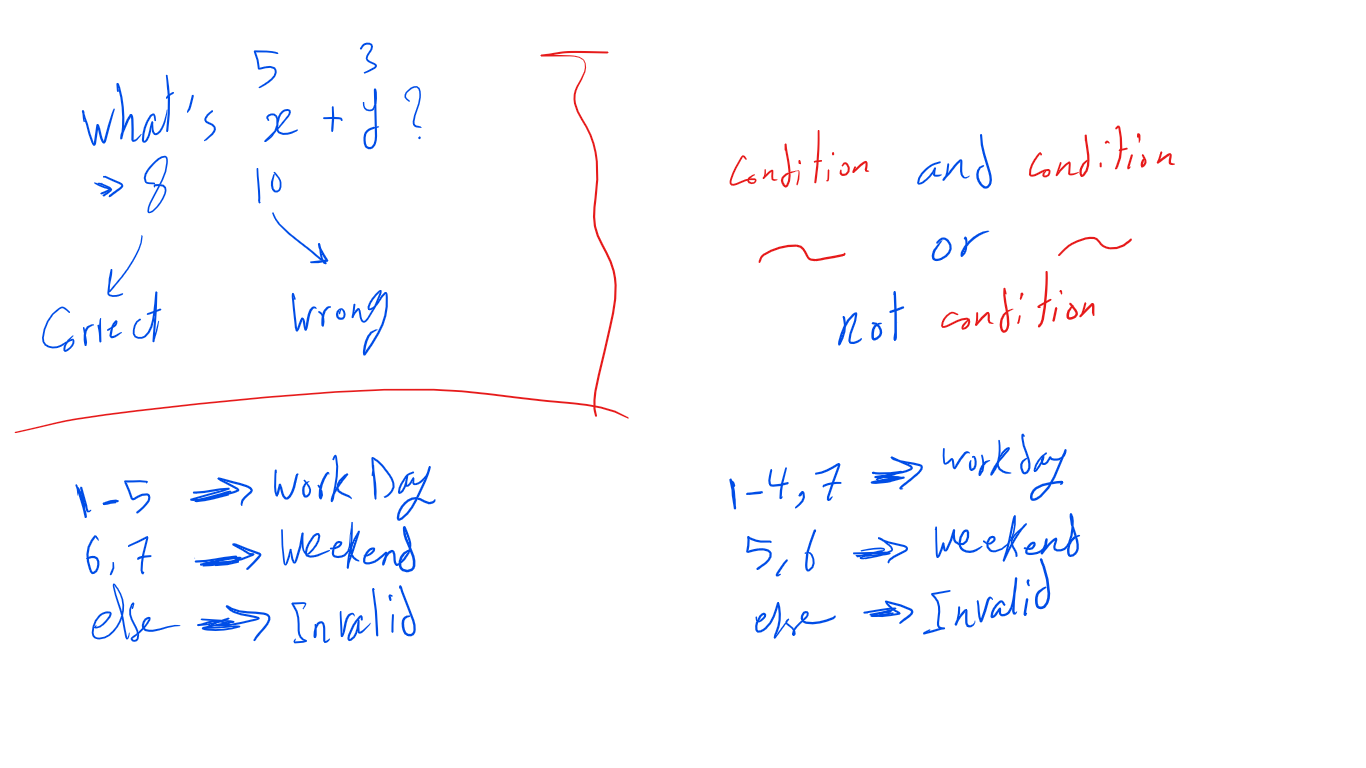 5 3
What's x + y ?
>> 8 10
Correct Wrong
condition and condition
or
not condition
1-5 => Work Day
6, 7 => Weekend
else => Invalid
1-4, 7 => workday
5, 6 => Weekend
else => Invalid